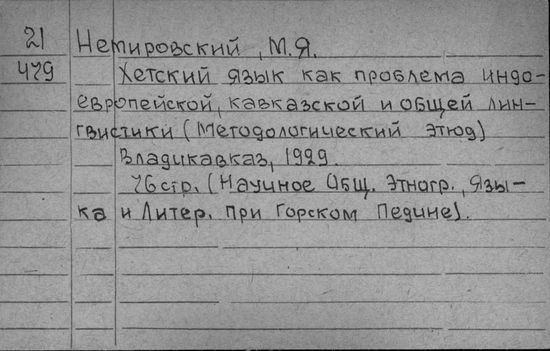 21 Немировский, М.Я.
479 Хетский язык как проблема индо-
европейской, кавказской и общей лин-
гвистики (Методологический этюд)
Владикавказ, 1929.
76 стр. (Научное Общ. Этногр., Язы-
ка и Литер. при Горском Педине).